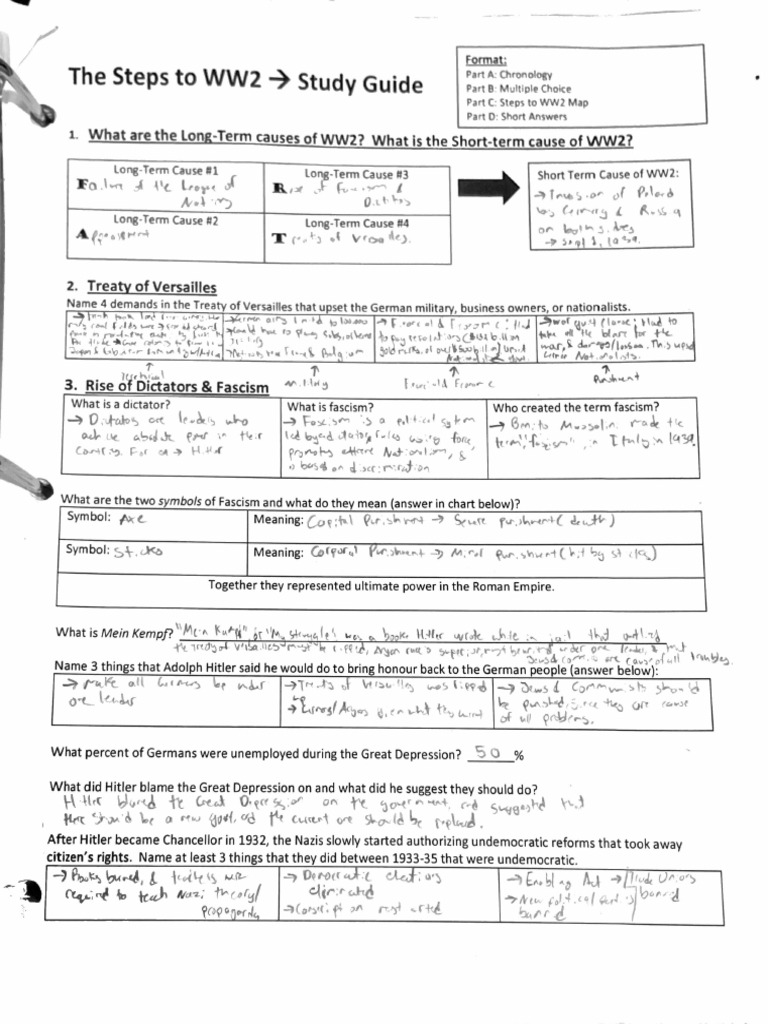 The Steps to WW2 → Study Guide
Format:
Part A: Chronology
Part B: Multiple Choice
Part C: Steps to WW2 Map
Part D: Short Answers
1. What are the Long-Term causes of WW2? What is the Short-term cause of WW2?
Long-Term Cause #1
Failure of the League of
Nations
Long-Term Cause #3
Rise of Fascism &
Long-Term Cause #2
Appeasement
Long-Term Cause #4
Treaty of Versailles.
Short Term Cause of WW2:
→ Invasion of Poland
by Germany & Russia
on both sides
2. Treaty of Versailles
Name 4 demands in the Treaty of Versailles that upset the German military, business owners, or nationalists.
→ German army limited to 100000
→ War guilt Clause: Had to
take all the blame for the
Military
Punishment
3. Rise of Dictators & Fascism
What is a dictator?
→ Dictators are leaders who
achieve absolute power in their
→ Hitler
What is fascism?
→ Fascism is a political system
led by a dictator, rules using force,
promoting extreme Nationalism, &
is based on discrimination
Who created the term fascism?
→ Benito Mussolini made the
term "fascism", in Italy in 1939.
What are the two symbols of Fascism and what do they mean (answer in chart below)?
Symbol: Axe
Meaning: Capital Punishment → Severe punishment (death)
Symbol: Sticks
Meaning: Corporal Punishment → Minor punishment (hit by sticks)
Together they represented ultimate power in the Roman Empire.
What is Mein Kempf? "Mein Kampf" or "My struggle" was a book Hitler wrote while in jail that outlined
the treaty of Versailles must be ripped, Aryan race is superior, must be united under one leader, & that
Jews & commies are cause of all troubles.
Name 3 things that Adolph Hitler said he would do to bring honour back to the German people (answer below):
→ Make all Germans be under
one leader
→ Treaty of Versailles was ripped
up
→ Jews & Communists should
be punished, since they are cause
of all problems.
What percent of Germans were unemployed during the Great Depression? 50 %
What did Hitler blame the Great Depression on and what did he suggest they should do?
Hitler blamed the Great Depression on the government, and suggested that
there should be a new govt, and the current one should be replaced.
After Hitler became Chancellor in 1932, the Nazis slowly started authorizing undemocratic reforms that took away
citizen's rights. Name at least 3 things that they did between 1933-35 that were undemocratic.
→ Books burned, & teachers were
required to teach Nazi theory/
propaganda
→ Democratic elections
eliminated
→ Conscription restarted
→ Enabling Act → Trade Unions
banned
→ New political parties
banned